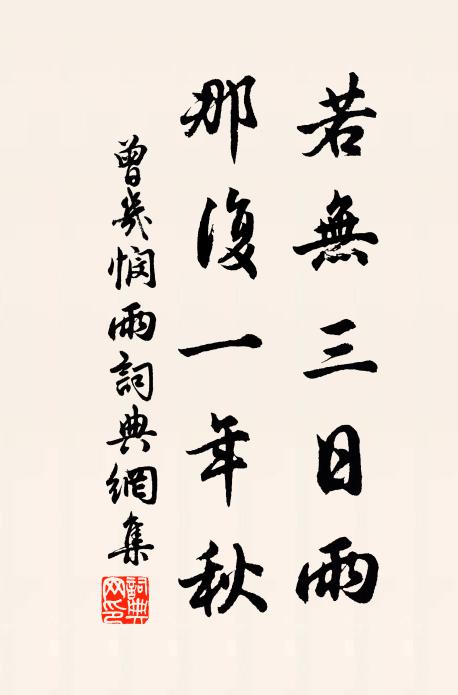 若無三日雨
那復一年秋
曾幾憫雨詞典網集
詞典網印